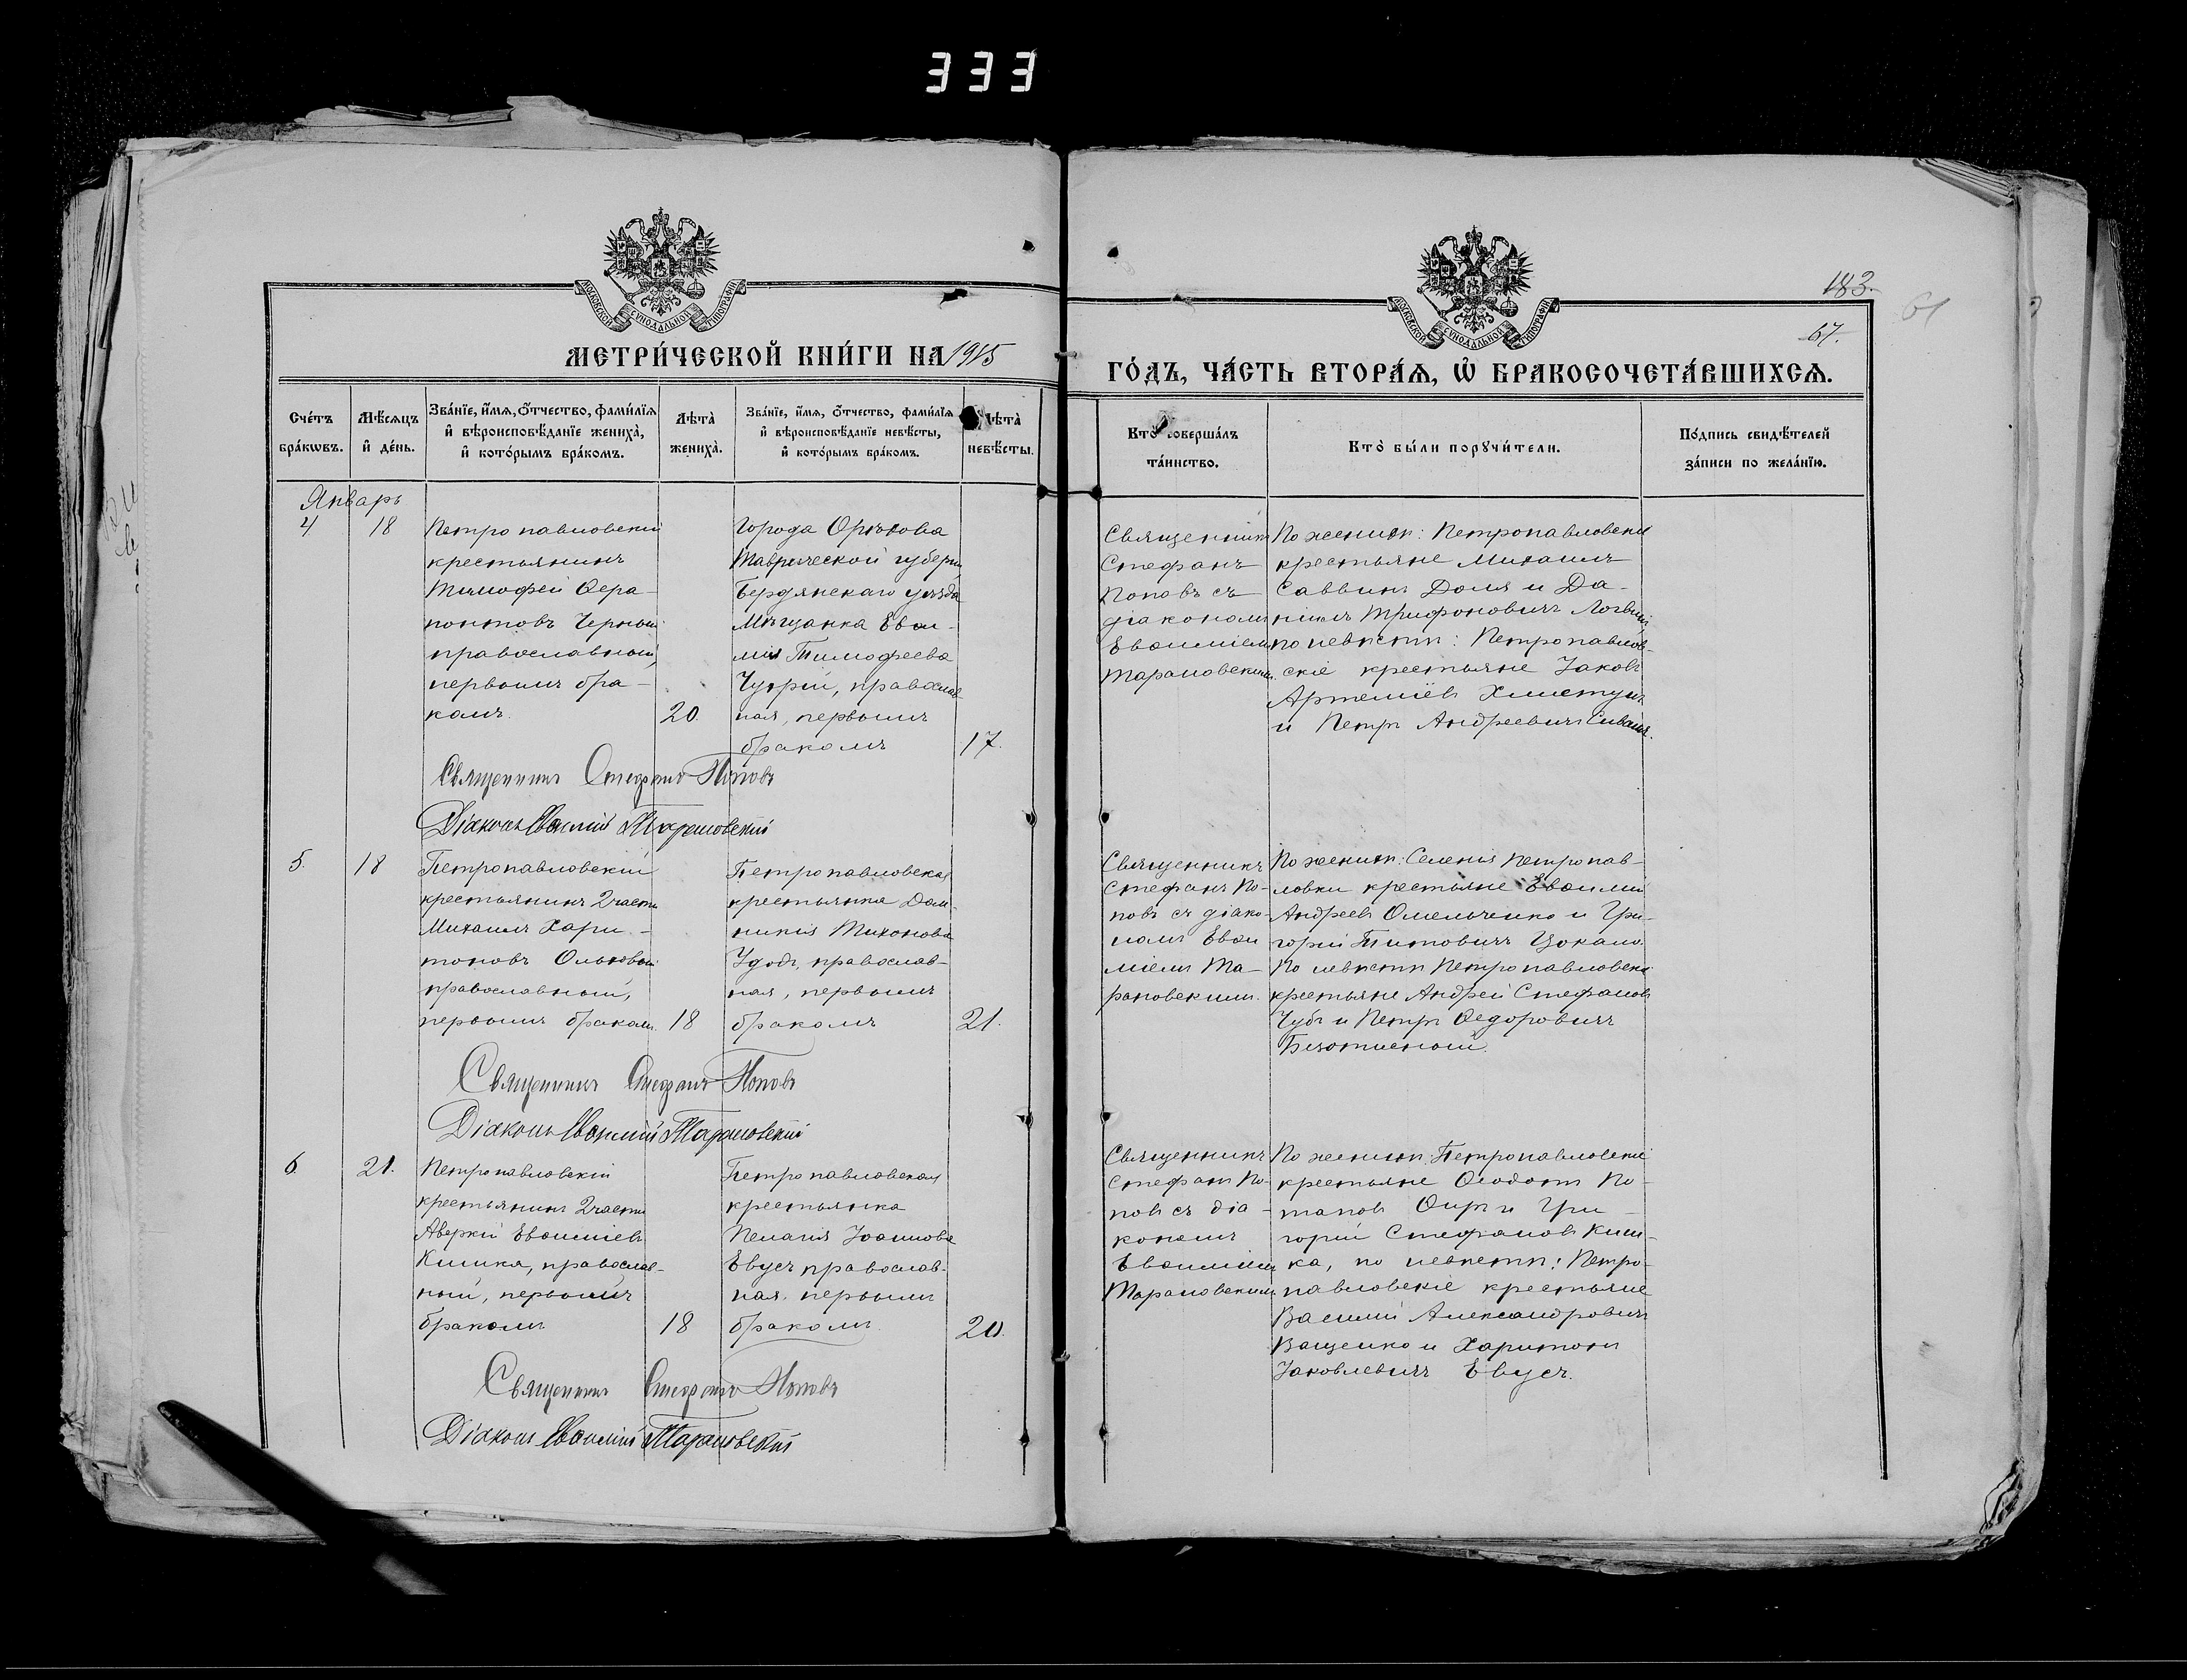 333
МОСКОВСКОЙ СѴНОДАЛЬНОЙ ТИПОГРАФІИ
МЕТРИ́ЧЕСКОЙ КНИ́ГИ НА 1915
Сче́тъ бра́кωвъ.
Мѣ́сѧцъ и҆ де́нь.
Зва́нїе, и҆́мѧ, ѻ҆́тчество, фами́лїѧ и҆ вѣроисповѣ́данїе жениха̀, и҆ кото́рымъ бра́комъ.
Лѣ́та жениха̀.
Зва́нїе, и҆́мѧ, ѻ҆́тчество, фами́лїѧ и҆ вѣроисповѣ́данїе невѣ́сты, и҆ кото́рымъ бра́комъ.
Лѣ́та невѣ́сты.
Январь
4
18
Петропавловскій
крестьянинъ
Тимофей Ѳера-
понтовъ Черный
православный,
первымъ бра-
комъ.
20.
Города Орѣхова
Таврической губерніи
Бердянскаго уѣзда
Мѣщанка Евѳи-
мія Тимофеева
православ
ная, первымъ
бракомъ
17.
Священникъ Стефанъ Поповъ
Діаконъ Евѳимій Тарановскій
5.
18
Петропавловскій
крестьянинъ 2 части
Михаилъ Хари-
тоновъ Ольховый
православный,
первымъ бракомъ.
18
Петропавловская
крестьянка Дом-
никія Тихонова
Удодъ, православ-
ная, первымъ
бракомъ
21.
Священникъ Стефанъ Поповъ
Діаконъ Евѳимій Тарановскій
6
21.
Петропавловскій
крестьянинъ 2 части
Аверкій Евѳиміевъ
Кишка, православ-
ный, первымъ
бракомъ
18
Петропавловская
крестьянка
Пелагія Іоаннова
Евусъ православ-
ная, первымъ
бракомъ
20.
Священникъ Стефанъ Поповъ
Діаконъ Евѳимій Тарановскій
МОСКОВСКОЙ СѴНОДАЛЬНОЙ ТИПОГРАФІИ
183.
67.
61
ГО́ДЪ, ЧА́СТЬ ВТОРА́Ѧ, Ѽ БРАКОСОЧЕТА́ВШИХСѦ.
Кто̀ соверша́лъ та́инство.
Кто̀ бы́ли порꙋчи́тели.
По́дпись свидѣ́телей за́писи по жела́нїю.
Священникъ
Стефанъ
Поповъ съ
діакономъ
Евѳиміемъ
Тарановскимъ.
По женихѣ: Петропавловскіе
крестьяне Михаилъ
Саввинъ Доля и Да-
ніилъ Трифоновичъ
по невѣстѣ: Петропавлов-
скіе крестьяне Іаковъ
Артеміевъ Хлистунъ
и Петръ Андреевичъ
Священникъ
Стефанъ По-
повъ съ діако-
номъ Евѳи
міемъ Та-
рановскимъ.
По женихѣ: Селенія Петропав-
ловки крестьяне Евѳимій
Андреевъ Омельченко и Гри-
горій Титовичъ Цокало.
По невѣстѣ Петропавловскіе
крестьяне Андрей Стефановъ
Чубъ и Петръ Ѳедоровичъ
Священникъ
Стефанъ По-
повъ съ діа-
кономъ
Евѳиміемъ
Тарановскимъ
По женихѣ: Петропавловскіе
крестьяне Ѳеодотъ По-
таповъ и Гри-
горій Стефановъ Киш-
ка, по невѣстѣ: Петро-
павловскіе крестьяне
Василій Александровичъ
Ващенко и Харитонъ
Іаковлевичъ Евусъ.